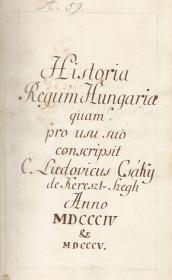 A. 59.
Historia
Regum Hungariæ
quam
pro usu suo
conscripsit
C. Ludovicus Csáky
de Kereszt-Szegh
Anno
MDCCCIV
&
MDCCCV.